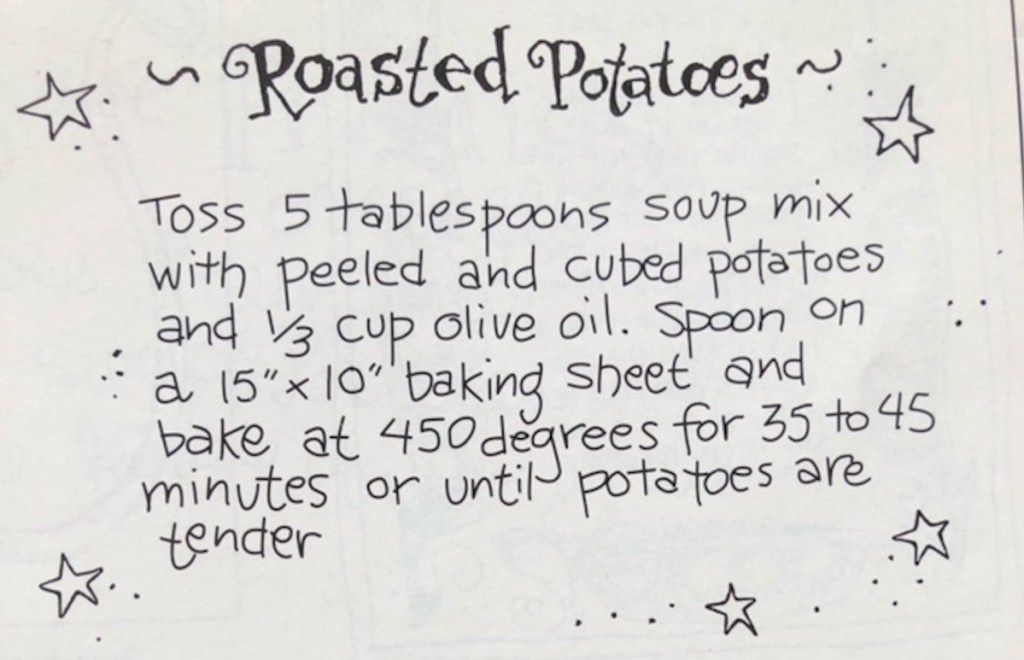 ~ Roasted Potatoes ~
Toss 5 tablespoons soup mix
with peeled and cubed potatoes
and 1/3 cup olive oil. Spoon on
a 15" x 10" baking sheet and
bake at 450 degrees for 35 to 45
minutes or until potatoes are
tender